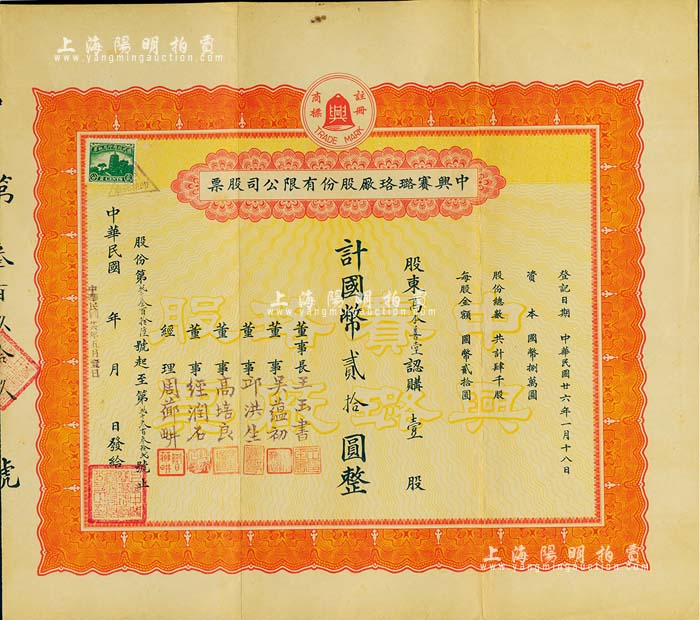 上海陽明拍賣
www.yangmingauction.com
註冊
商標
興
TRADE MARK
中興賽璐珞厰股份有限公司股票
登記日期 中華民國廿六年一月十八日
資本 國幣捌萬圓
股份總數 共計肆千股
每股金額 國幣貳拾圓
股東
認購 壹 股
計國幣貳拾圓整
董事長 王玉書
董事 吳蘊初
董事 邱洪生
董事 高培良
董事 經潤石
經理
股份第
號起至第
號止
中華民國 年 月 日發給
中興賽璐珞厰股
上海陽明拍賣
www.yangmingauction.com
上海陽明拍賣
www.yangmingauction.com
第
號